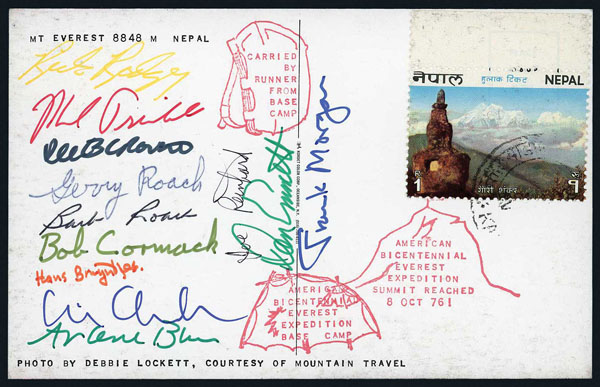 MT EVEREST 8848 M NEPAL
Rick Ridgeway
Phil Trimble
Gerry Roach
Barb Roach
Bob Cormack
Hans Bruyntjes.
Chris Chandler
Arlene Blum
Joe Reinhard
Dan Emmett
Frank Morgan
CARRIED
BY
RUNNER
FROM
BASE
CAMP
नेपाल
हुलाक टिकट
NEPAL
1
गौरी शंकर
१
AMERICAN
BICENTENNIAL
EVEREST
EXPEDITION
SUMMIT REACHED
8 OCT 76!
AMERICAN
BICENTENNIAL
EVEREST
EXPEDITION
BASE CAMP
PHOTO BY DEBBIE LOCKETT, COURTESY OF MOUNTAIN TRAVEL